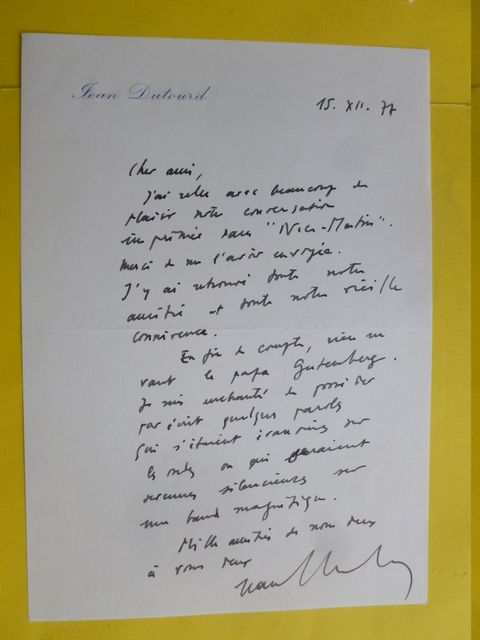 Jean Dutourd
15. XII. 77
Cher ami,
J'ai relu avec beaucoup de
plaisir notre conversation
imprimée dans "Nice-Matin".
Merci de me l'avoir envoyée.
J'y ai retrouvé toute notre
amitié et toute notre vieille
connivence.
En fin de compte, rien ne
vaut le papa Gutenberg.
Je suis enchanté de posséder
par écrit quelques paroles
qui s'étaient évanouies sur
les ondes ou qui étaient
devenues silencieuses sur
une bande magnétique.
Mille amitiés de nous deux
à vous deux
Jean